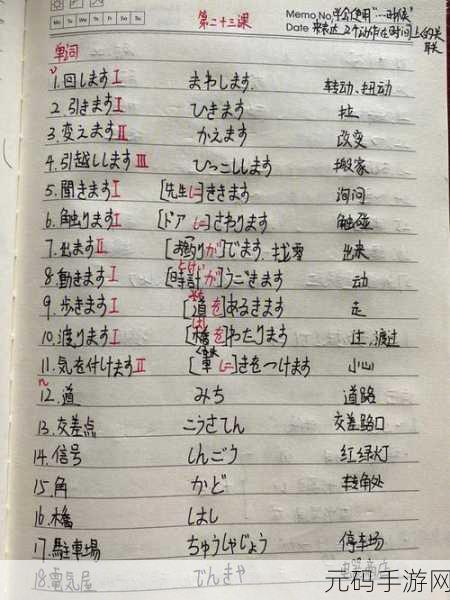 第二十三课
Memo No. 学会使用"…時候"
Mo Tu We Th Fr Sa Su
Date 来表达2个动作在时间上的关联
单词
v
1.回します I まわします. 转动、扭动
2.引きます I ひきます 拉
3.変えます II かえます 改变
4.引越しします III ひっこしします 搬家
5.聞きます I [先生に]ききます 询问
6.触ります I [ドアに]さわります 触碰
7.出ます II [お釣りが]でます.找零 出来
8.動きます I [時計が]うごきます 动
とけい
9.歩きます I [道を]あるきます 走
みち
10.渡ります I [橋を]わたります 过,渡过
はし
11.気を付けます II [車に]きをつけます 小心
くるま
n
12.道 みち 道路
13.交差点 こうさてん 交差路口
14.信号 しんごう 红绿灯
15.角 かど 转角处
16.橋 はし
17.駐車場 ちゅうしゃじょう 停车场
18.電気屋 でんきや 电器商店
元码手游网